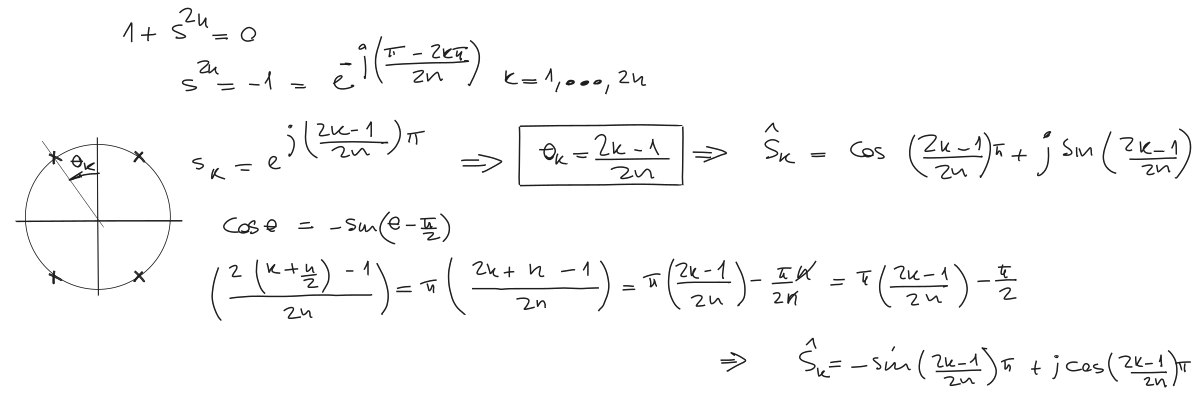 1 + s^{2n} = 0
s^{2n} = -1 = e^{-j(\frac{π - 2kπ}{2n})} k = 1, ..., 2n
s_k = e^{j(\frac{2k-1}{2n})π} ⇒ θ_k = \frac{2k-1}{2n} ⇒ ŝ_k = cos(\frac{2k-1}{2n})π + j sin(\frac{2k-1}{2n})
θ_k
cos θ = -sin(θ - \frac{π}{2})
(\frac{2(k+\frac{n}{2}) - 1}{2n}) = π(\frac{2k + n - 1}{2n}) = π(\frac{2k-1}{2n}) - \frac{πn}{2n} = π(\frac{2k-1}{2n}) - \frac{π}{2}
⇒ ŝ_k = -sin(\frac{2k-1}{2n})π + j cos(\frac{2k-1}{2n})π